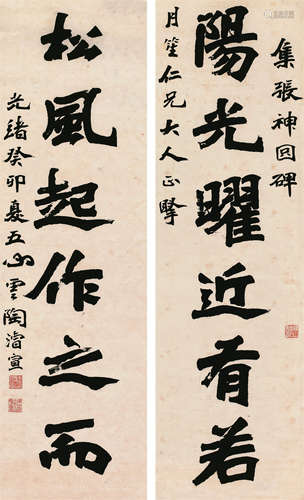 集張神冏碑
陽光曜近有若
月笙仁兄大人正
松風起作之而
光緒癸卯夏五心雲陶濬宣